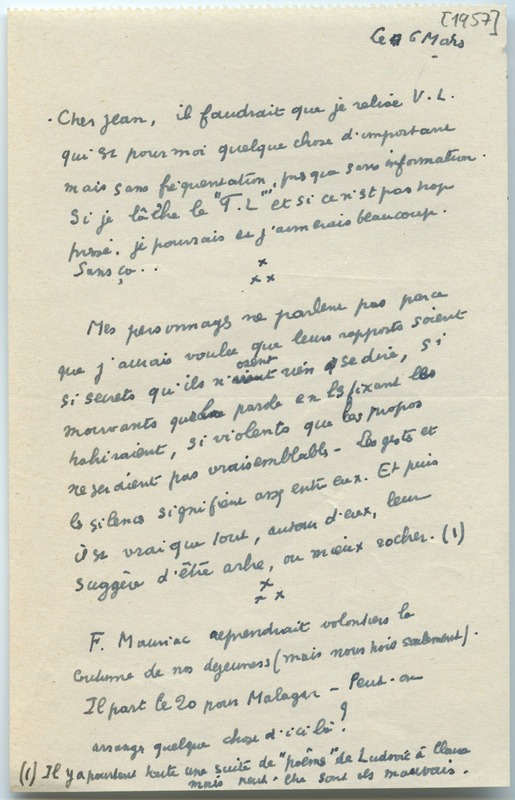 [1957]
Ce 6 Mars
Cher Jean, il faudrait que je relise V.L.
qui est pour moi quelque chose d'important
mais sans fréquentation, presque sans information.
Si je lâche le "T.L", et si ce n'est pas trop
pressé. je pourrais et j'aimerais beaucoup.
Sans ça..
x
x x
Mes personnages ne parlent pas parce
que j'aurais voulu que leurs rapports soient
si secrets qu'ils n'osent rien se dire, si
mouvants que la parole en les fixant les
trahiraient, si violents que les propos
ne seraient pas vraisemblables - Les gestes et
le silence signifient assez entre eux. Et puis
il est vrai que tout, autour d'eux, leur
suggère d'être arbre, ou mieux rocher. (1)
x
x x
F. Mauriac reprendrait volontiers la
coutume de nos déjeuners (mais nous trois seulement).
Il part le 20 pour Malagar - Peut-on
arranger quelque chose d'ici là?
(1) Il y a pourtant toute une suite de "poèmes" de Ludovic à Clara
mais peut-être sont ils mauvais.